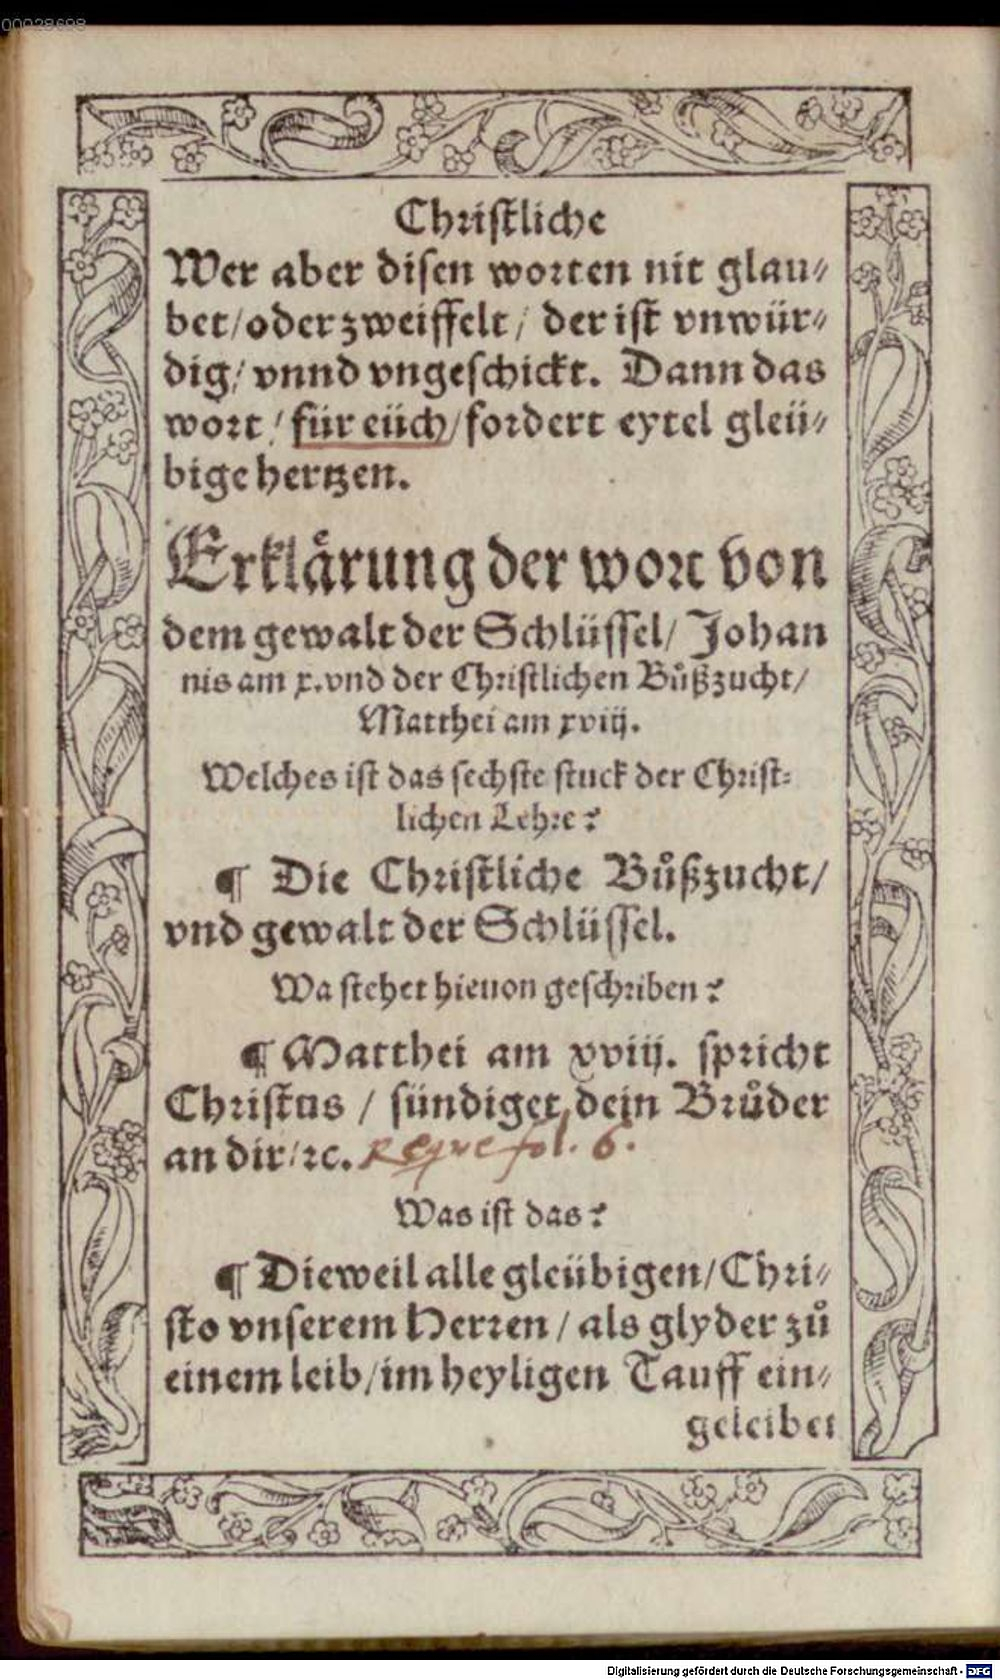 00028698
Christliche
Wer aber disen worten nit glau⸗
bet/oder zweiffelt/ der ist vnwür⸗
dig/ vnnd vngeschickt. Dann das
wort/ für eüch/fordert eytel gleü⸗
bige hertzen.
Erklårung der wort von
dem gewalt der Schlüssel/ Johan
nis am x. vnd der Christlichen Bůßzucht/
Matthei am xviij.
Welches ist das sechste stuck der Christ⸗
lichen Lehre?
¶ Die Christliche Bůßzucht/
vnd gewalt der Schlüssel.
Wa stehet hieuon geschriben?
¶ Matthei am xviij. spricht
Christus / sündiget dein Brůder
an dir/ ꝛc. Reqre fol. 6.
Was ist das?
¶ Dieweil alle gleübigen/Chri⸗
sto vnserem Herren / als glyder zů
einem leib/im heyligen Tauff ein⸗
geleibet
Digitalisierung gefördert durch die Deutsche Forschungsgemeinschaft - DFG